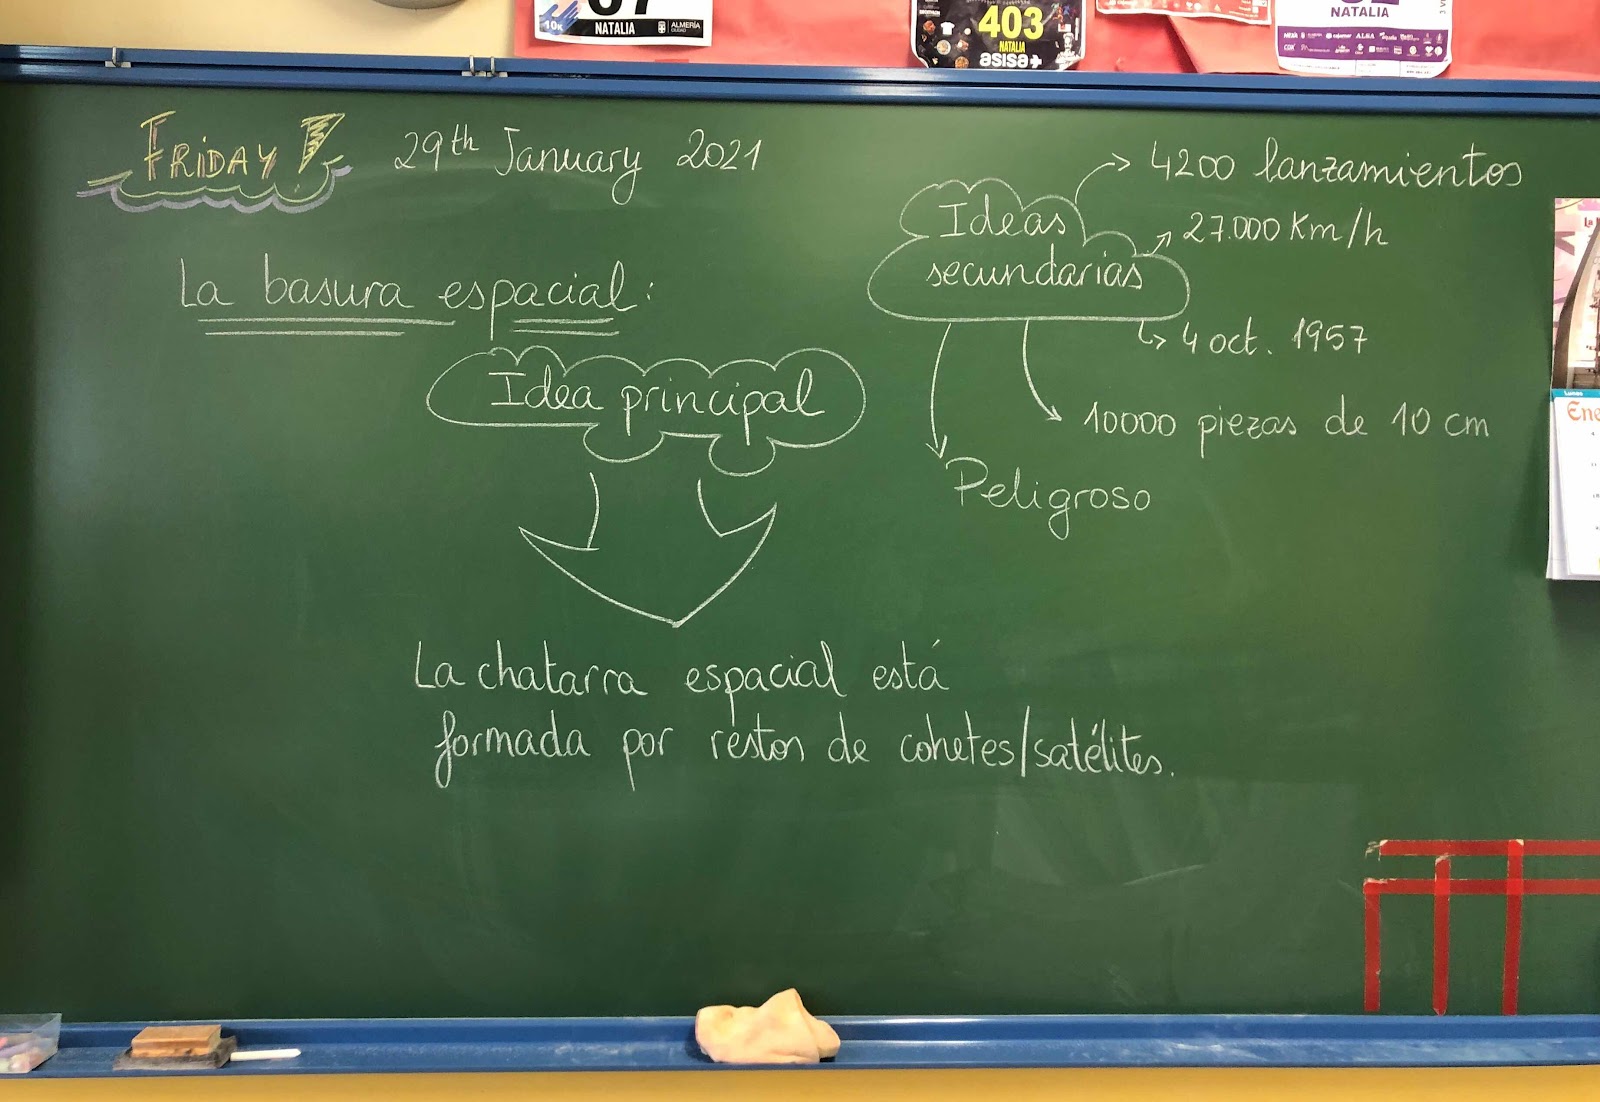 10K NATALIA ALMERÍA CIUDAD
403
NATALIA
asisa+
NATALIA
FRIDAY! 29th January 2021
La basura espacial:
Idea principal
La chatarra espacial está
formada por restos de cohetes/satélites.
Ideas
secundarias
4200 lanzamientos
27.000 Km/h
4 oct. 1957
10000 piezas de 10 cm
Peligroso
Lunes
Ene